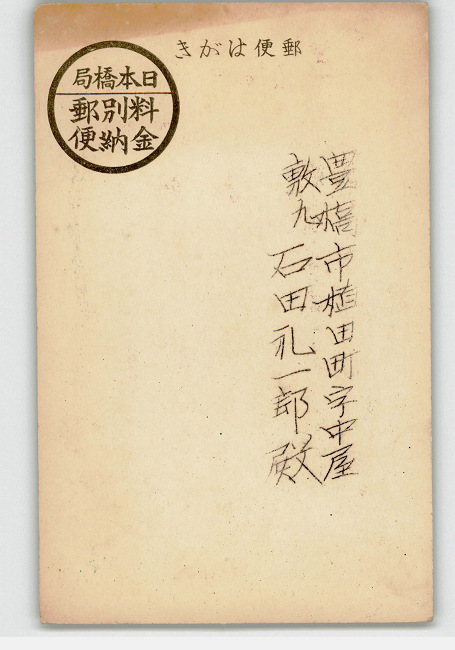 郵便はがき
日本橋局
料金別納郵便
豊橋市植田町字中屋
敷九
石田礼一郎殿